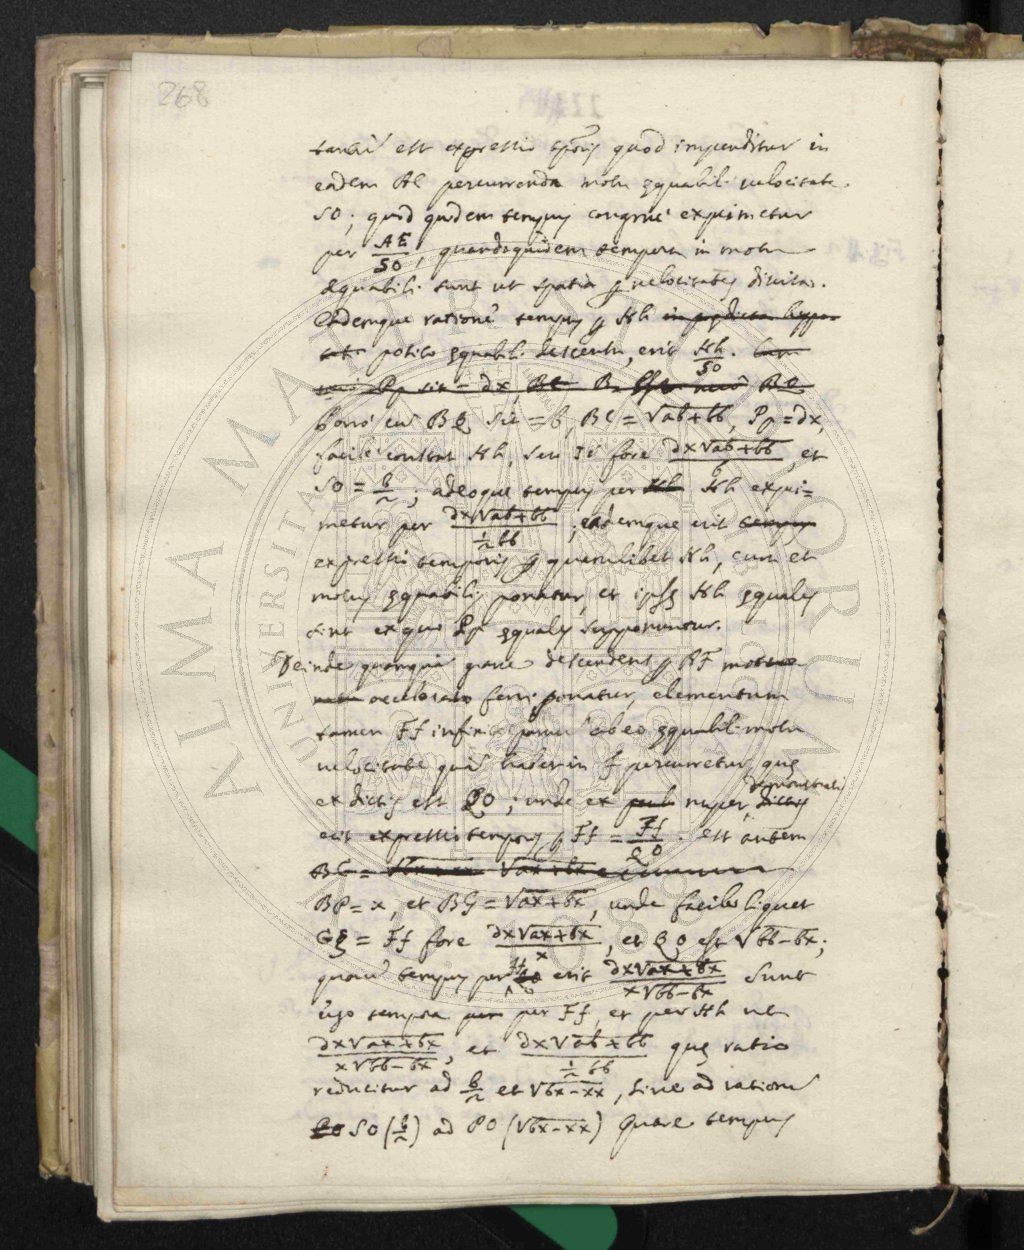 268
tanui est expressio tporis quod impenditur in
eadem AE percurrenda motu ęquabili velocitate
SO; quod quidem tempus congruè exprimetur
per AE/SO, quandoquidem tempora in motu
ęquabili sunt ut spatia p velocitates divisa.
Eademque ratione tempus p Hh in prędicta hypo=
posito ęquabili descensu, erit Hh/SO.
Pp sit = dx, BE
Porrò cũ BQ sit = b, BE = √ab+bb, Pp = dx,
facilè constat Hh, seu fore dx√ab+bb/b, et
SO = b/2; adeoque tempus per Hh Hh expri=
metur per dx√ab+bb/½bb; eademque erit tempus
expressio temporis p quemlibet Hh, cum et
motus ęquabilis ponatur, et ipsę Hh ęquales
sint ex quo Pp ęquales supponuntur.
Deinde quamquã grave descendens p BF motu
accelerato ferri ponatur, elementum
tamen Ff infinitè parvũ ab eo ęquabili motu
velocitate quã habet in f percurretur, quę
demonstratis
ex dictis est QO; unde ex nuper dictis
erit expressio temporis p Ff = Ff/QO. est autem
BG = √ax+bx
BP = x, et BG = √ax+bx, unde facilè liquet
Gg = Ff fore dx√ax+bx/x, et QO est √bb-bx;
quarè tempus per Ff erit dx√ax+bx/x√bb-bx Sunt
ergo tempora per Ff, et per Hh ut
dx√ax+bx/x√bb-bx, et dx√ab+bb/½bb quę ratio
reducitur ad b/2 et √bx-xx, sive ad rationẽ
SO (b/2) ad PO (√bx-xx) Quare tempus
ALMA MATER TICINENSIS
UNIVERSITAS